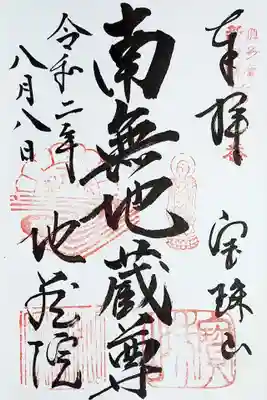 奉拝
宝珠山
南無地蔵尊
令和二年
八月八日
地蔵院